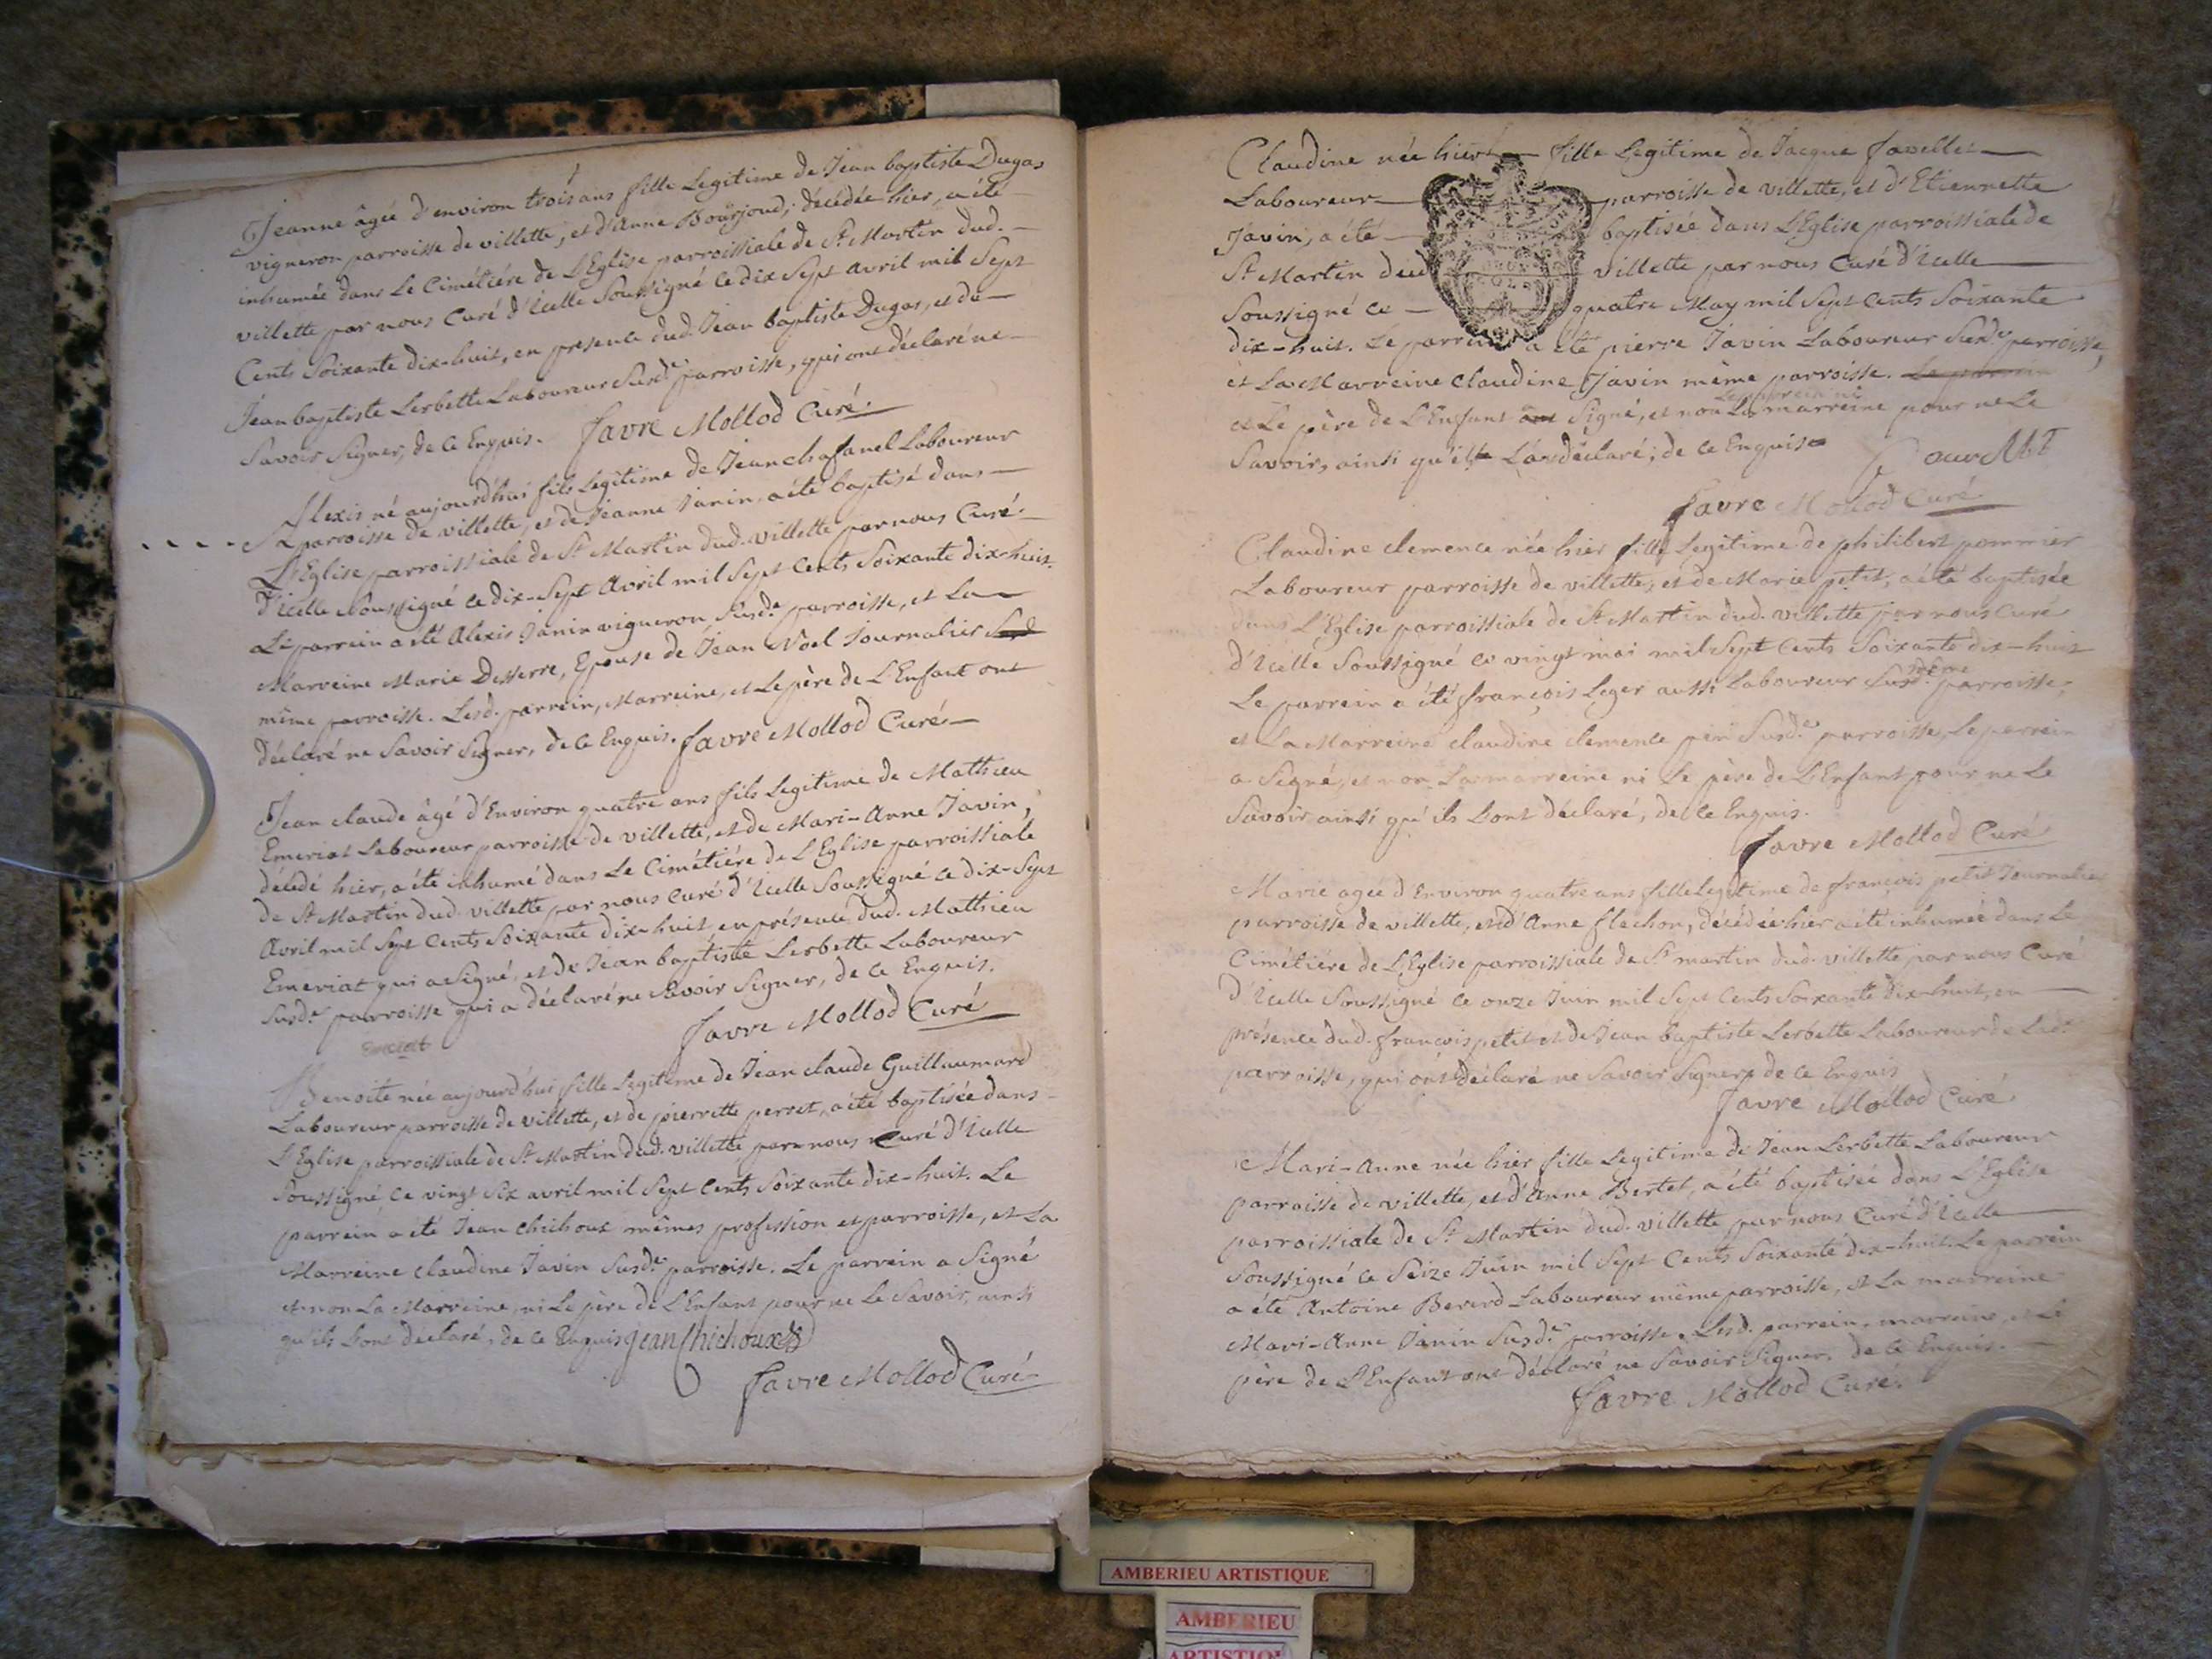 Jeanne âgée d'environ trois ans fille Legitime de Jean baptiste Dugas
vigneron parroisse de villette, et d'Anne Bourjoud, décédée hier, a été
inhumée dans Le Cimétiére de L'Eglise parroissiale de St Martin dud.
villette par nous Curé d'Icelle Soussigné Ce dix Sept avril mil Sept
Cents Soixante dix-huit, en presence dud. Jean baptiste Dugas, et de
Jean baptiste Lerbette Laboureur Susde parroisse, qui ont déclaré ne
Savoir Signer, de Ce Enquis. favre Mollod Curé
Alexis né aujourd'hui fils Legitime de Jean chafanel Laboureur
parroisse de villette, et de Jeanne Janin, a été baptisé dans
L'Eglise parroissiale de St Martin dud. villette par nous Curé
d'Icelle Soussigné ce dix-Sept Avril mil Sept Cents Soixante dix-huit.
Le parrein a été Alexis Janin vigneron Susde parroisse, et La
Marreine Marie Desserre, Epouse de Jean Noel Journalier
même parroisse. Lesd. parrein, Marreine, et Le père de L'Enfant ont
déclaré ne Savoir Signer, de Ce Enquis. favre Mollod Curé
Jean claude âgé d'Environ quatre ans fils Legitime de Mathieu
Emeriat Laboureur parroisse de villette, et de Mari-Anne Javin,
décédé hier, a été inhumé dans Le Cimétiére de L'Eglise parroissiale
de St Martin dud. villette par nous Curé d'Icelle Soussigné Ce dix-Sept
Avril mil Sept Cents Soixante dix-huit, en présence dud. Mathieu
Emeriat qui a Signé, et de Jean baptiste Lerbette Laboureur
Susde parroisse qui a déclaré ne Savoir Signer, de Ce Enquis.
favre Mollod Curé
Emeriat
Benoite née aujourd'hui fille Legitime de Jean claude Guillaumard
Laboureur parroisse de villette, et de pierrette perret, a été baptisée dans
L'Eglise parroissiale de St Martin dud. villette par nous Curé d'Icelle
Soussigné, Ce vingt Six avril mil Sept Cents Soixante dix-huit. Le
parrein a été Jean Chichoux mêmes profession et parroisse, et La
Marreine Claudine Javin Susde parroisse. Le parrein a Signé
et non La Marreine, ni Le père de L'Enfant pour ne Le Savoir, ainsi
qu'ils Lont déclaré, de Ce Enquis jean Chichoux
favre Mollod Curé
Claudine née hier fille Legitime de Jacque favellet
Laboureur parroisse de villette, et d'Etiennette
Javin, a été baptisée dans L'Eglise parroissiale de
St Martin dud villette par nous Curé d'Icelle
Soussigné Ce quatre May mil Sept Cents Soixante
dix-huit. Le parrein a été pierre Javin Laboureur Susde parroisse,
et La Marreine claudine Javin même parroisse.
Le parrein ni
et Le père de L'Enfant Signé, et non La marreine pour ne Le
Savoir, ainsi qu'ils L'on déclaré; de Ce Enquis
favre Mollod Curé
Claudine clemence née hier fille Legitime de philibert pommier
Laboureur parroisse de villette, et de Marie petit, a été baptisée
dans L'Eglise parroissiale de St Martin dud. villette par nous Curé
d'Icelle Soussigné Ce vingt mai mil Sept Cents Soixante dix-huit
Le parrein a été françois Leger aussi Laboureur même parroisse,
et La Marreine claudine clemence pin Susde parroisse, Le parrein
a Signé, et non La marreine ni Le père de L'Enfant pour ne Le
Savoir ainsi qu'ils Lont déclaré, de Ce Enquis.
favre Mollod Curé
Marie agée d'Environ quatre ans fille Legitime de françois petit Journalier
parroisse de villette, et d'Anne flechon, décédée hier a été inhumée dans Le
Cimétiére de L'Eglise parroissiale de St martin dud. villette par nous Curé
d'Icelle Soussigné Ce onze Juin mil Sept Cents Soixante dix-huit, en
présence dud. françois petit et de Jean baptiste Lerbette Laboureur de Lade
parroisse, qui ont déclaré ne Savoir Signer, de Ce Enquis
favre Mollod Curé.
Mari-Anne née hier fille Legitime de Jean Lerbette Laboureur
parroisse de villette, et d'Anne Bertet, a été baptisée dans L'Eglise
parroissiale de St Martin dud. villette par nous Curé d'Icelle
Soussigné Ce Seize Juin mil Sept Cents Soixante dix-huit. Le parrein
a été Antoine Berard Laboureur même parroisse, et La marreine
Mari-Anne Janin Susde parroisse. Lesd. parrein, marreine, et Le
père de L'Enfant ont déclaré ne Savoir Signer, de Ce Enquis.
favre Mollod Curé.
AMBERIEU ARTISTIQUE
AMBERIEU
ARTISTIQUE